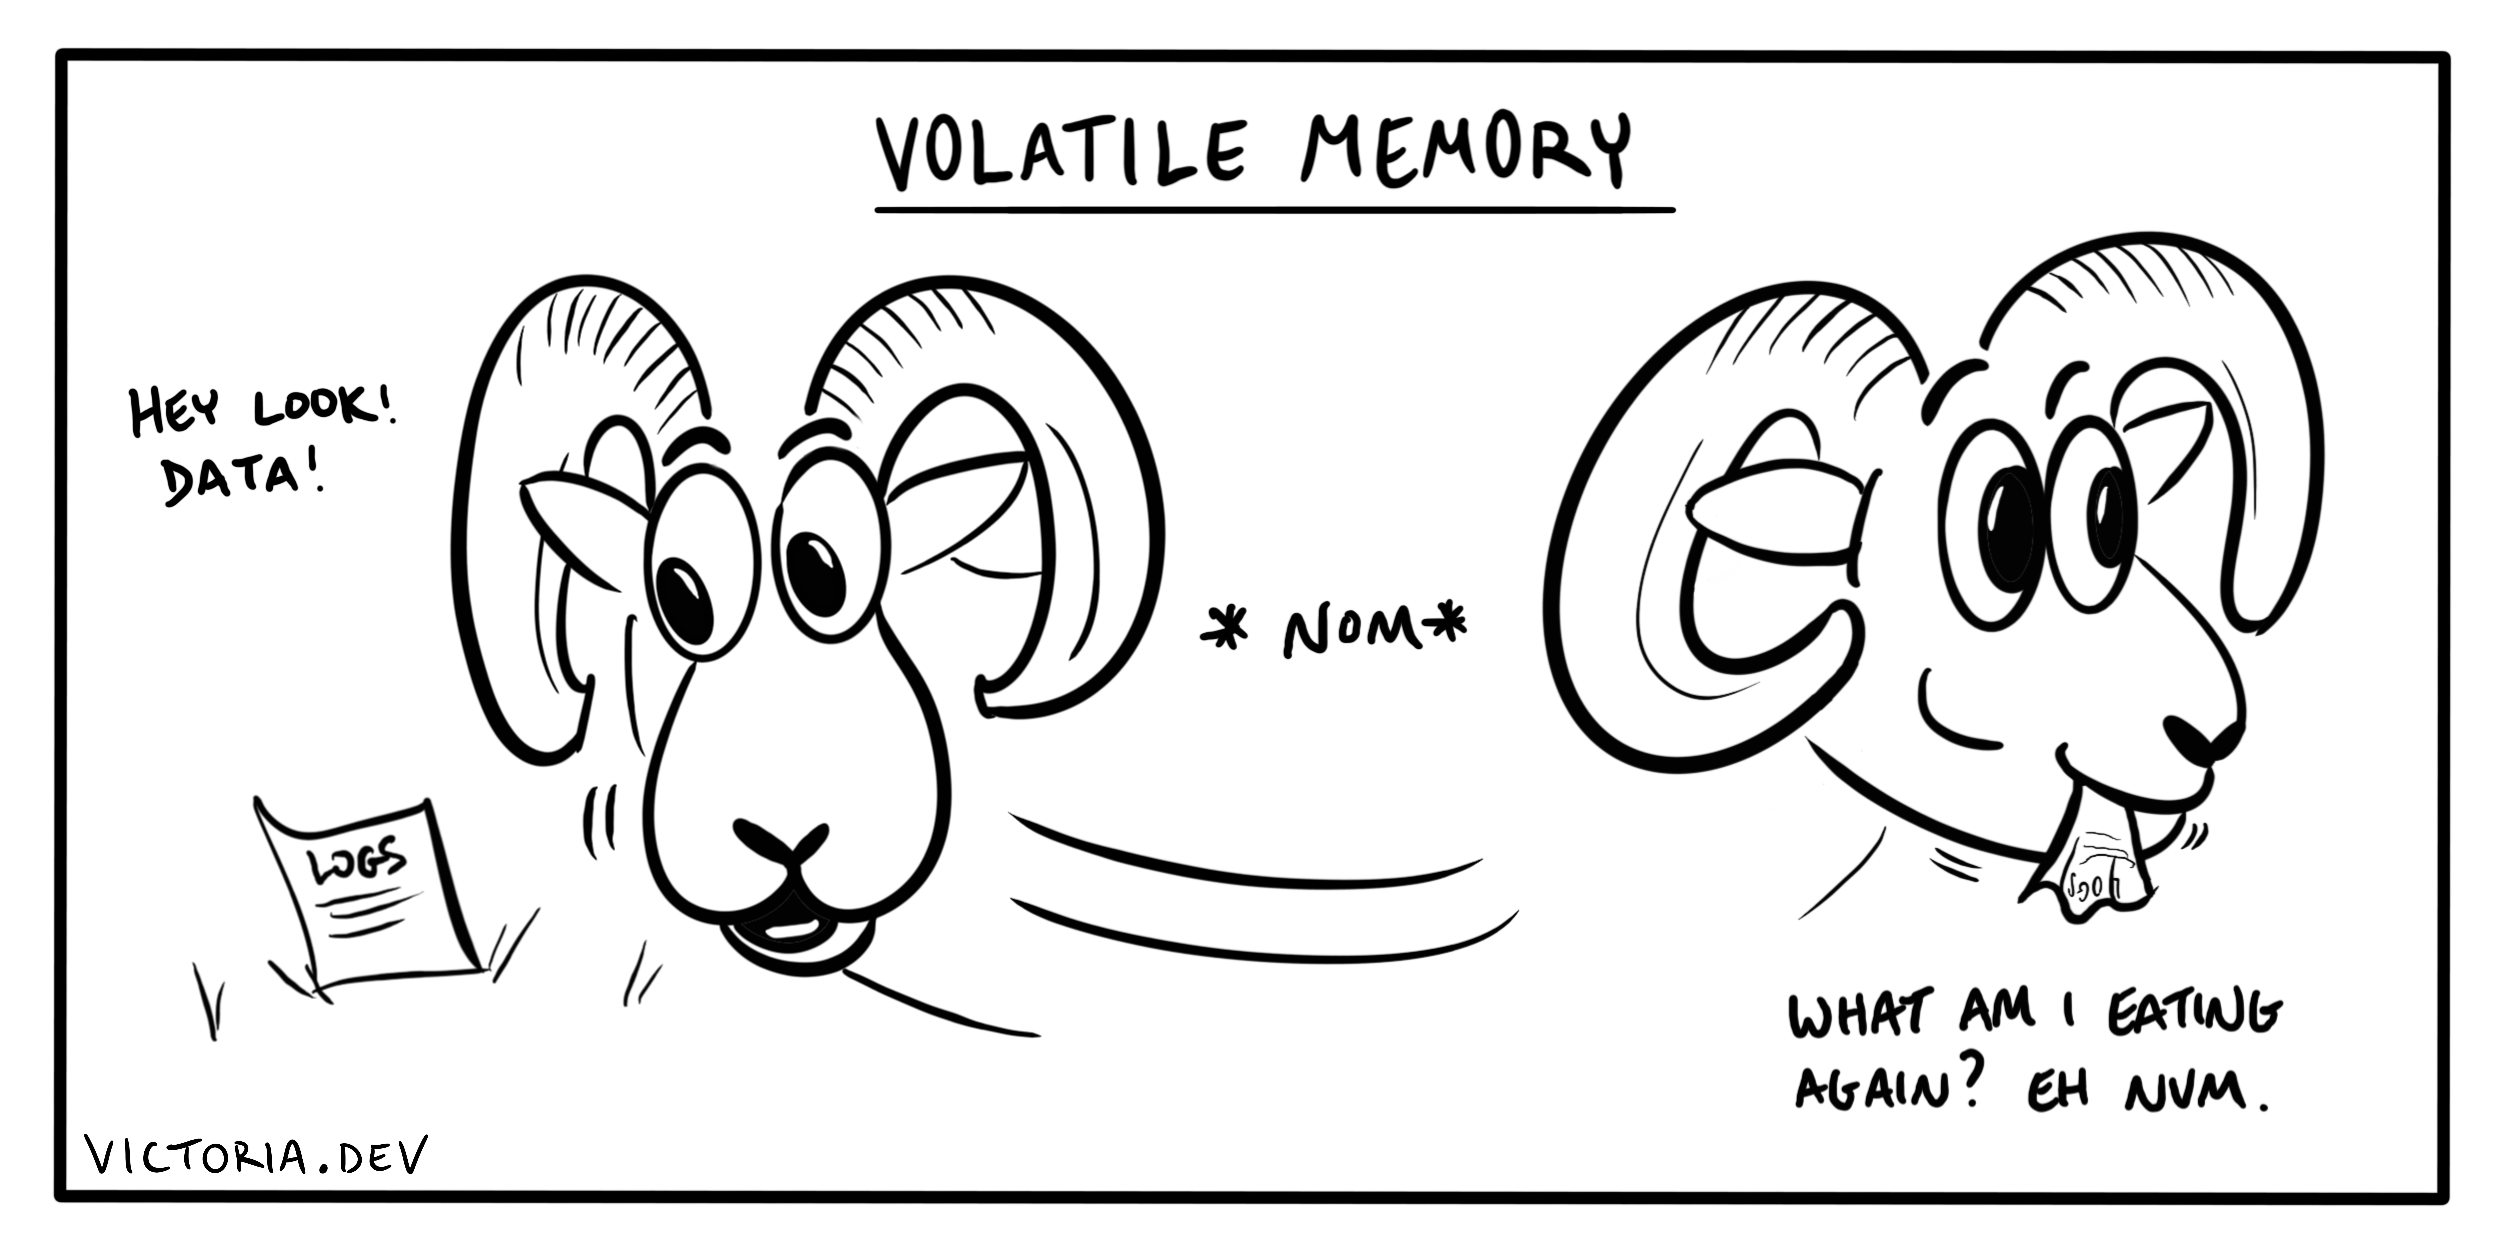 VOLATILE MEMORY
HEY LOOK!
DATA!
LOGS
* NOM *
LOGS
WHAT AM I EATING
AGAIN? EH NVM.
VICTORIA.DEV